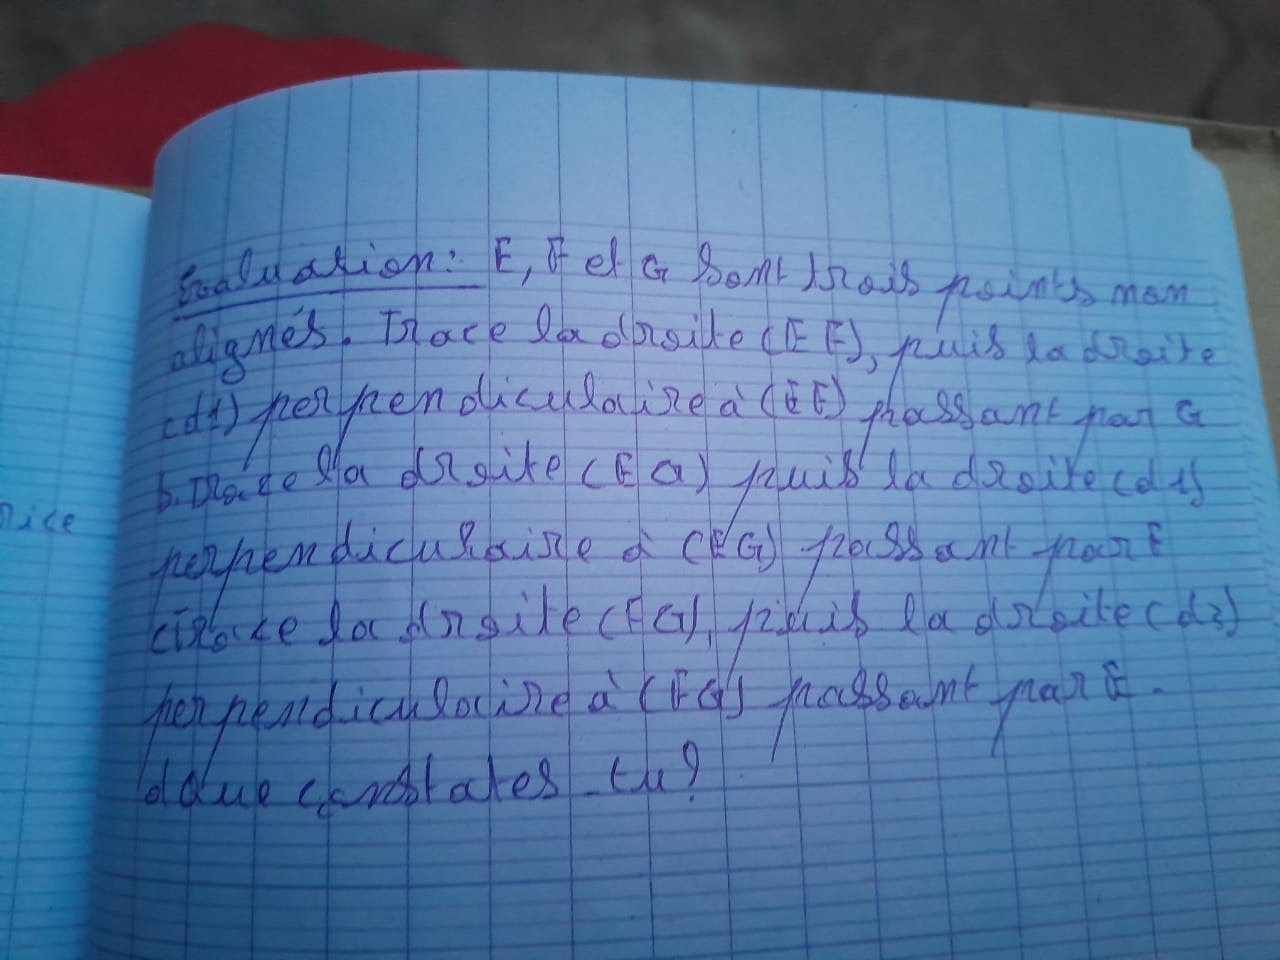 Evaluation: E, F et G sont trois points non
alignés. Trace la droite (EF), puis la droite
(d1) perpendiculaire à (EF) passant par G
b. Trace la droite (EG) puis la droite (d1)
perpendiculaire à (EG) passant par F
c Trace la droite (FG), puis la droite (d3)
perpendiculaire à (FG) passant par E.
d Que constates-tu?
rice